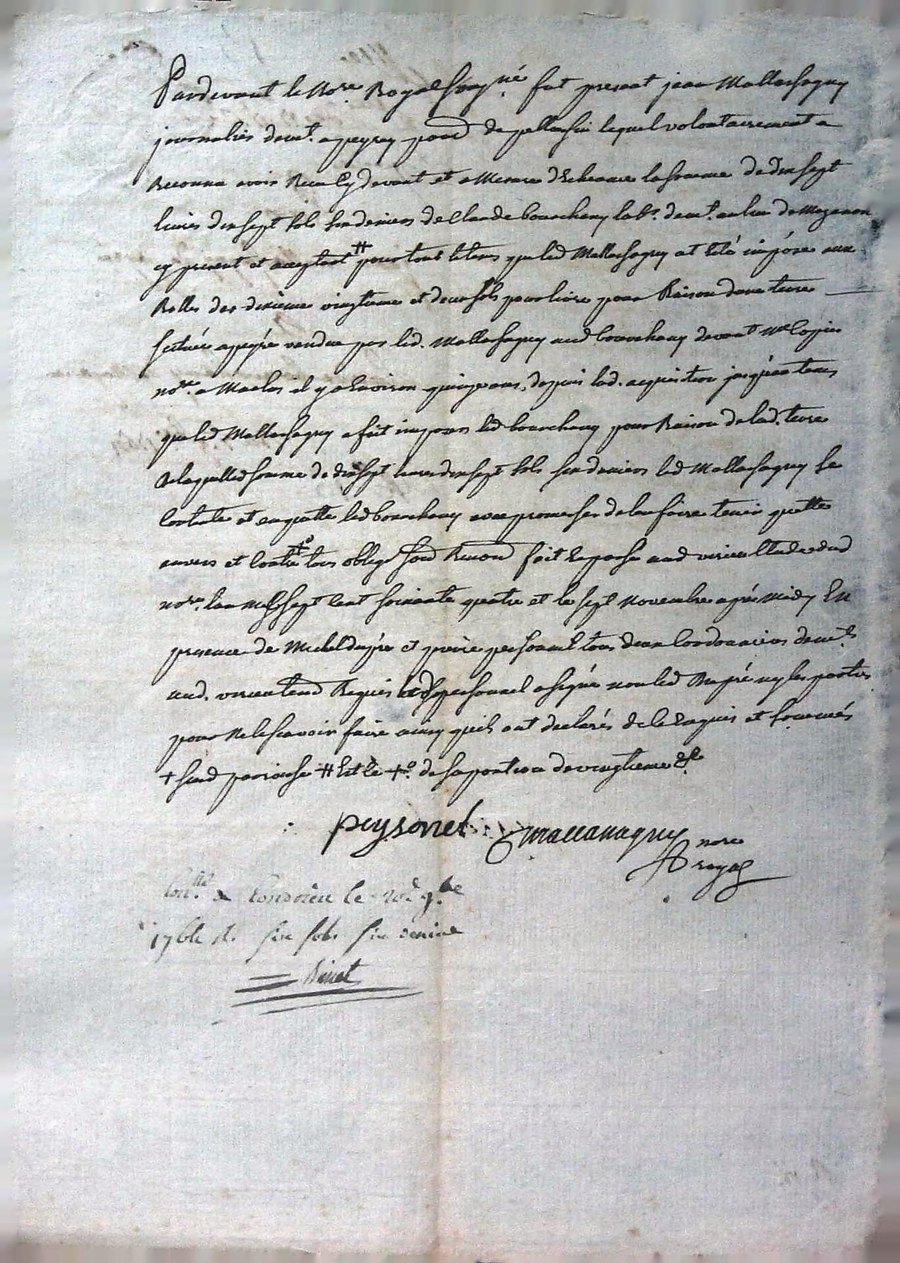 Pardevant le No.re Royal soug.né fut present jean Mallassagny
journalier demt. a peyrey parr. de pellussin lequel volontairement a
Reconnu avoir Receu Cy devant et a Mesure d'Echeance la somme de dix sept
livres dix sept sols six deniers de Claude bourchany lab.r dem.t au lieu de Mezenon
cy present et acceptant # pour tout le tems que led Mallassagny at eté imposé aux
Rolles des dixieme vingtieme et deux sols pour livre pour Raison dune terre
scituée a peyré vendue par led. Mallassagny aud bourchany devant Me
no.re a Maclas il y a Environ quinze ans, depuis lad. acquisition jusques au tems
que led Mallassagny a fait imposer led bourchany pour Raison de lad. terre
de laquelle somme de dix sept livres dix sept sols six deniers led Mallassagny se
contente et en quitte led bourchany avec promesse de len faire tenir quitte
envers et contre tous oblige soud Renond fait Et passé aud virieu Etude dud
no.re lan Mil sept cent soixante quatre et le sept novembre aprés Midy En
presence de Michel dupré et peysonnel tous deux Cordonniers dem.ts
aud. virieu temd Requis led peysonnel a signé non led dupré ny les parties
pour ne le scavoir faire ainsy quils ont declarés de ce Enquis et sommés
+ susd parroisse #
peysonel Mallassagny nore
royal
Con.llé a Condrieu le 9.bre
1764 R. six sols six denier